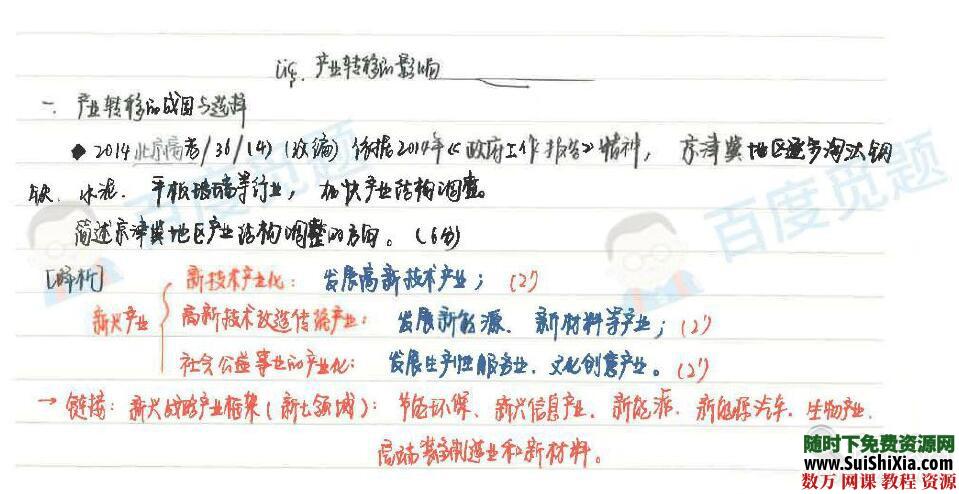 产业转移的影响
一、产业转移的成因与选择
◆ 2014北京高考/36/(4) (改编) 依据2014年《政府工作报告》精神，京津冀地区逐步淘汰钢
铁、水泥、平板玻璃等行业，加快产业结构调整。
简述京津冀地区产业结构调整的方向。(6分)
[解析]
新兴产业
新技术产业化：发展高新技术产业；(2')
高新技术改造传统产业：发展新能源、新材料等产业；(2')
社会公益事业的产业化：发展生产性服务业、文化创意产业。(2')
→ 链接：新兴战略产业框架(新七领域)：节能环保、新兴信息产业、新能源、新能源汽车、生物产业、
高端装备制造业和新材料。
百度觅题
百度觅题
随时下免费资源网
www.SuiShiXia.com
数万 网课 教程 资源